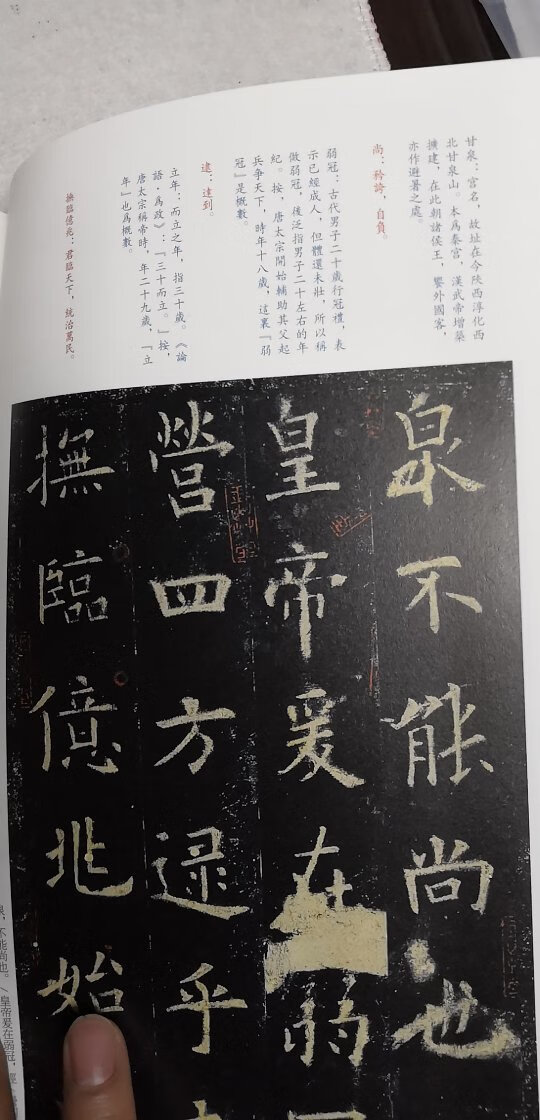 甘泉：宮名，故址在今陝西淳化西
北甘泉山。本爲秦宮，漢武帝增築
擴建，在此朝諸侯王，饗外國客，
亦作避暑之處。
尚：矜誇，自負。
弱冠：古代男子二十歲行冠禮，表
示已經成人，但體還未壯，所以稱
做弱冠，後泛指男子二十左右的年
紀。按，唐太宗開始輔助其父起
兵爭天下，時年十八歲，這裏『弱
冠』是概數。
逮：達到。
立年：而立之年，指三十歲。《論
語·爲政》：『三十而立。』按，
唐太宗稱帝時，年二十九歲，『立
年』也爲概數。
撫臨億兆：君臨天下，統治萬民。
泉不能尚也
皇帝爰在弱
營四方逮乎
撫臨億兆始
不能尚也。／皇帝爰在弱冠，